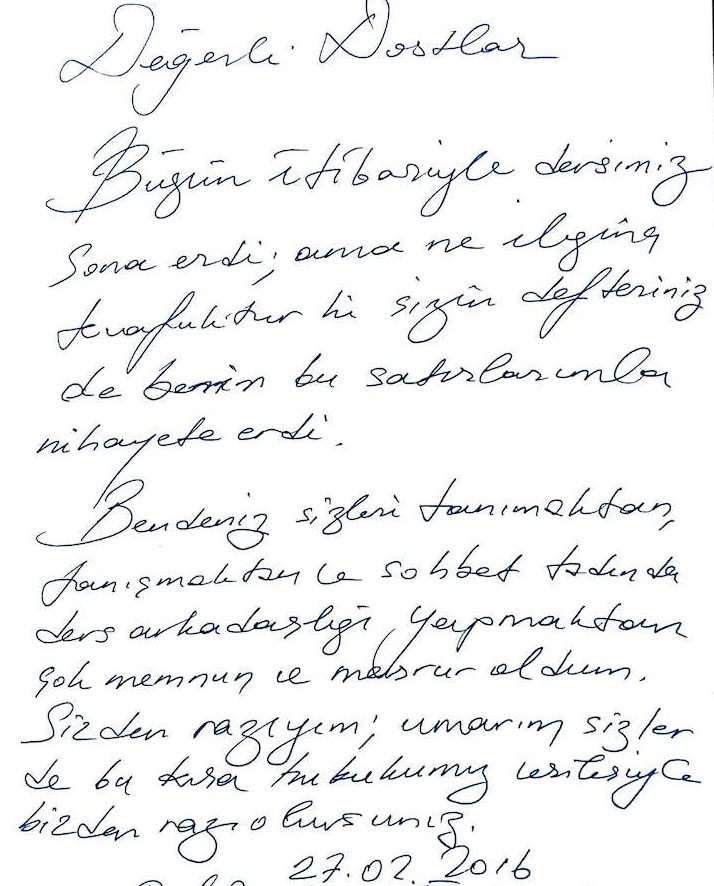 Değerli Dostlar
Bugün itibariyle dersimiz
Sona erdi; ama ne ilginç
tevafuktur ki sizin defteriniz
de benim bu satırlarımla
nihayete erdi.
Bendeniz sizleri tanımaktan,
tanışmaktan ve sohbet tadında
ders arkadaşlığı yapmaktan
çok memnun ve mesrur oldum.
Sizden razıyım; umarım sizler
de bu kısa hukukumuz vesilesiyle
bizden razı olursunuz.
27.02.2016